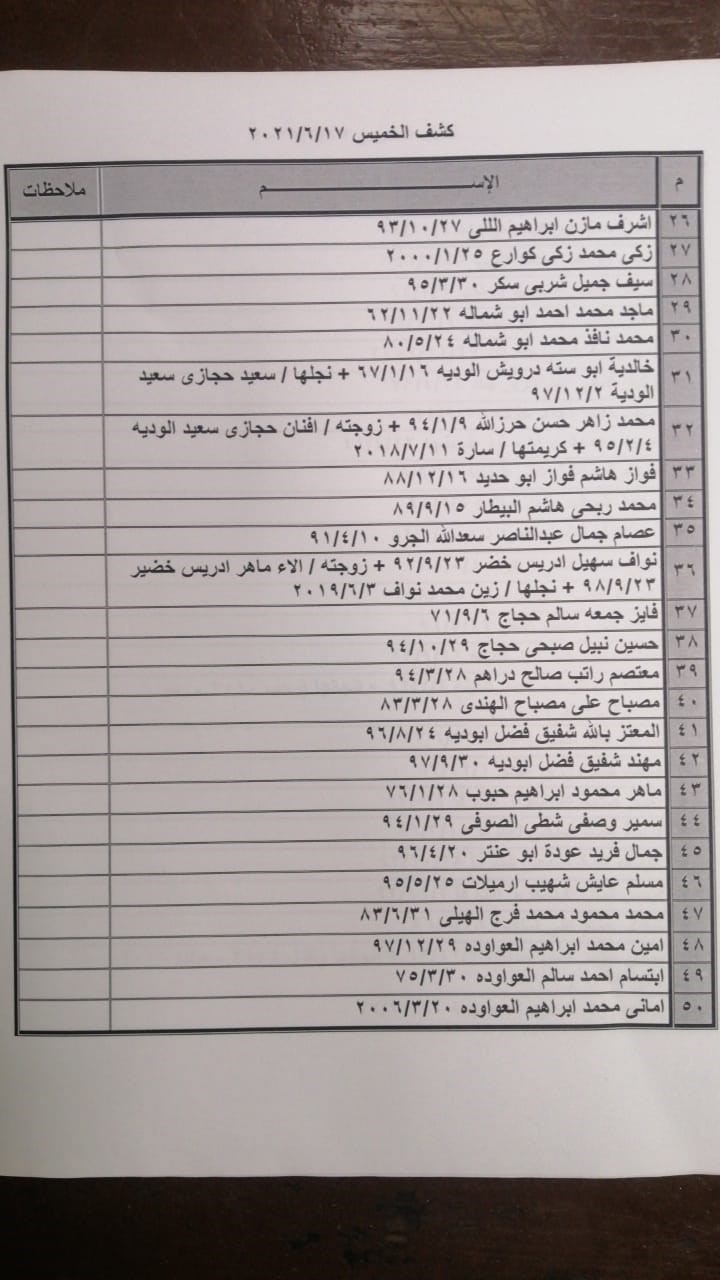 كشف الخميس ٢٠٢١/٦/١٧
م الإســـــــم ملاحظات
٢٦ اشرف مازن ابراهيم اللى ٩٣/١٠/٢٧
٢٧ زكى محمد زكى كوارع ٢٠٠٠/١/٢٥
٢٨ سيف جميل شربى سكر ٩٥/٣/٣٠
٢٩ ماجد محمد احمد ابو شماله ٦٢/١١/٢٢
٣٠ محمد نافذ محمد ابو شماله ٨٠/٥/٢٤
٣١ خالدية ابو سته درويش الوديه ٦٧/١/١٦ + نجلها / سعيد حجازى سعيد
الودية ٩٧/١٢/٢
٣٢ محمد زاهر حسن حرزالله ٩٤/١/٩ + زوجته / افنان حجازى سعيد الوديه
٩٥/٢/٤ + كريمتها / سارة ٢٠١٨/٧/١١
٣٣ فواز هاشم فواز ابو حديد ٨٨/١٢/١٦
٣٤ محمد ربحى هاشم البيطار ٨٩/٩/١٥
٣٥ عصام جمال عبدالناصر سعدالله الجرو ٩١/٤/١٠
٣٦ نواف سهيل ادريس خضر ٩٢/٩/٢٣ + زوجته / الاء ماهر ادريس خضير
٩٨/٩/٢٣ + نجلها / زين محمد نواف ٢٠١٩/٦/٣
٣٧ فايز جمعه سالم حجاج ٧١/٩/٦
٣٨ حسين نبيل صبحى حجاج ٩٤/١٠/٢٩
٣٩ معتصم راتب صالح دراهم ٩٤/٣/٢٨
٤٠ مصباح على مصباح الهندى ٨٣/٣/٢٨
٤١ المعتز بالله شفيق فضل ابوديه ٩٦/٨/٢٤
٤٢ مهند شفيق فضل ابوديه ٩٧/٩/٣٠
٤٣ ماهر محمود ابراهيم حبوب ٧٦/١/٢٨
٤٤ سمير وصفى شطى الصوفى ٩٤/١/٢٩
٤٥ جمال فريد عودة ابو عنتر ٩٦/٤/٢٠
٤٦ مسلم عايش شهيب ارميلات ٩٥/٥/٢٥
٤٧ محمد محمود محمد فرج الهيلى ٨٣/٦/٣١
٤٨ امين محمد ابراهيم العواوده ٩٧/١٢/٢٩
٤٩ ابتسام احمد سالم العواوده ٧٥/٣/٣٠
٥٠ امانى محمد ابراهيم العواوده ٢٠٠٦/٣/٢٠